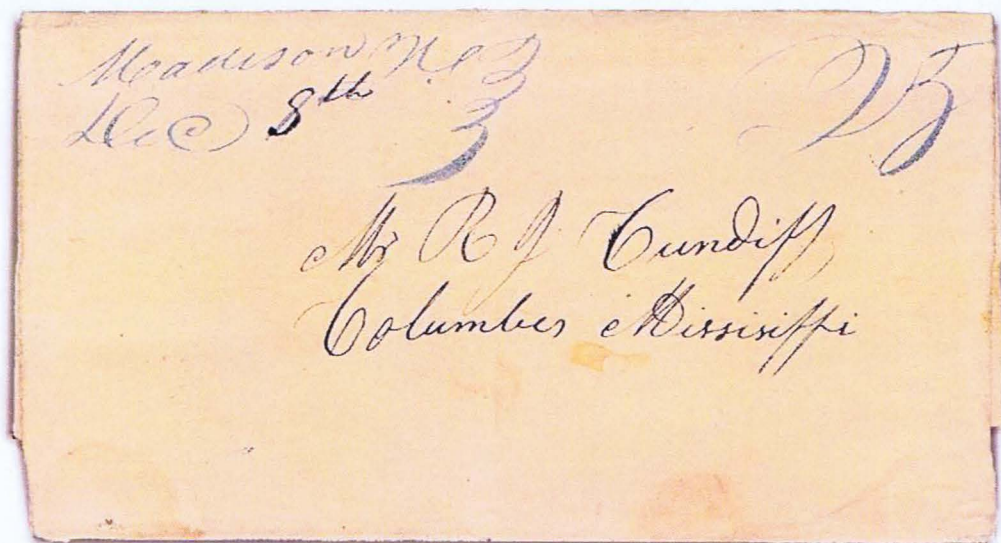 Madison N.C.
Dec 8th
25
Mr R J Cundiff
Columbus Mississiffi